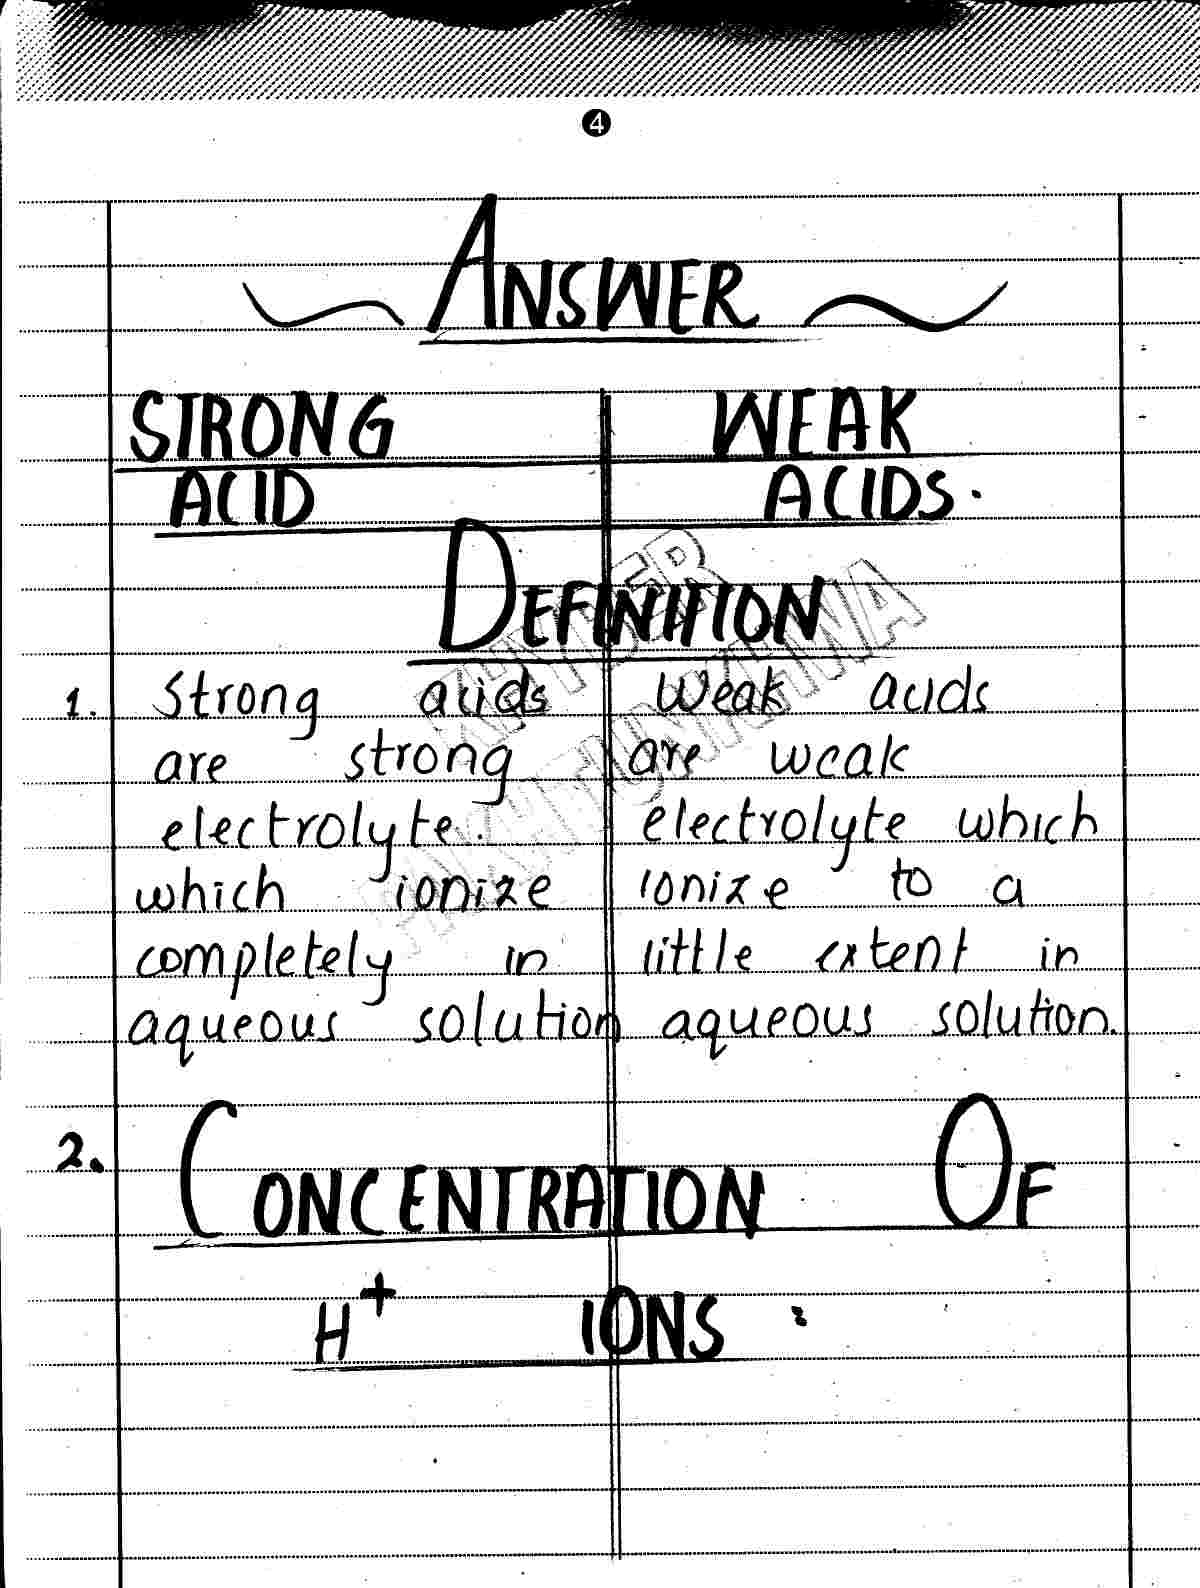 4
ANSWER
STRONG ACID
WEAK ACIDS.
DEFINITION
1. Strong acids
are strong
electrolyte.
which ionize
completely in
aqueous solution
Weak acids
are weak
electrolyte which
ionize to a
little extent in
aqueous solution.
2. CONCENTRATION OF
H+ IONS :
KHYBER
PAKHTUNKHWA